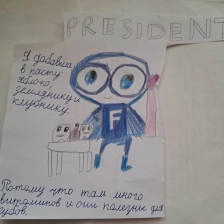 PRESIDENT
Я добавила
в пасту
яблоко,
землянику и
клубнику.
F
Потому что там много
витаминов и они полезны для
зубов.